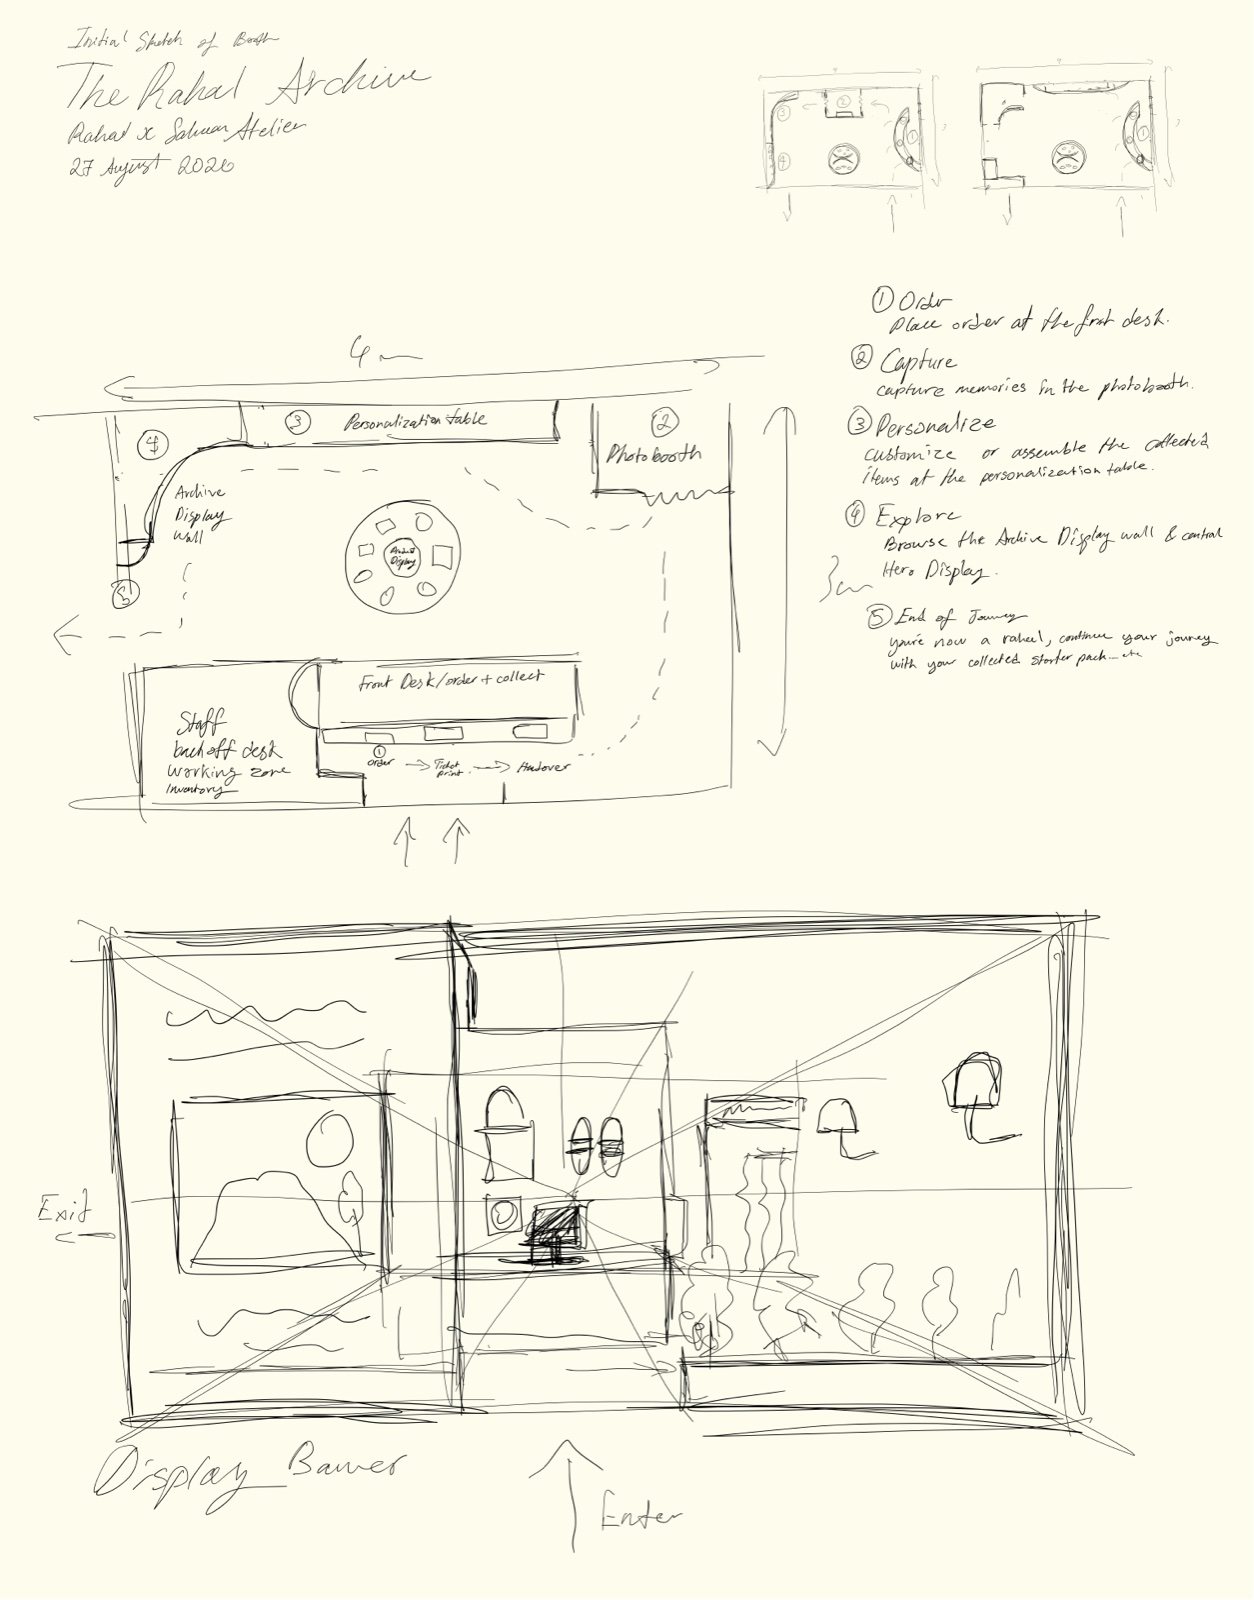 Initial Sketch of Booth
The Rahal Archive
Rahal x Atelier
27 August 2026
4 m
③ Personalization table
②
Photobooth
④
Archive
Display
Wall
Display
⑤
3 m
Front Desk/order + collect
Staff
desk
working zone
Inventory
①
order → Ticket print → Handover
① Order
Place order at the front desk.
② Capture
capture memories in the photobooth.
③ Personalize
customize or assemble the collected
items at the personalization table.
④ Explore
Browse the Archive Display wall & central
Hero Display.
⑤ End of Journey
you're now a rahal, continue your journey
with your collected starter pack... etc
Exit
Display Banner
Enter